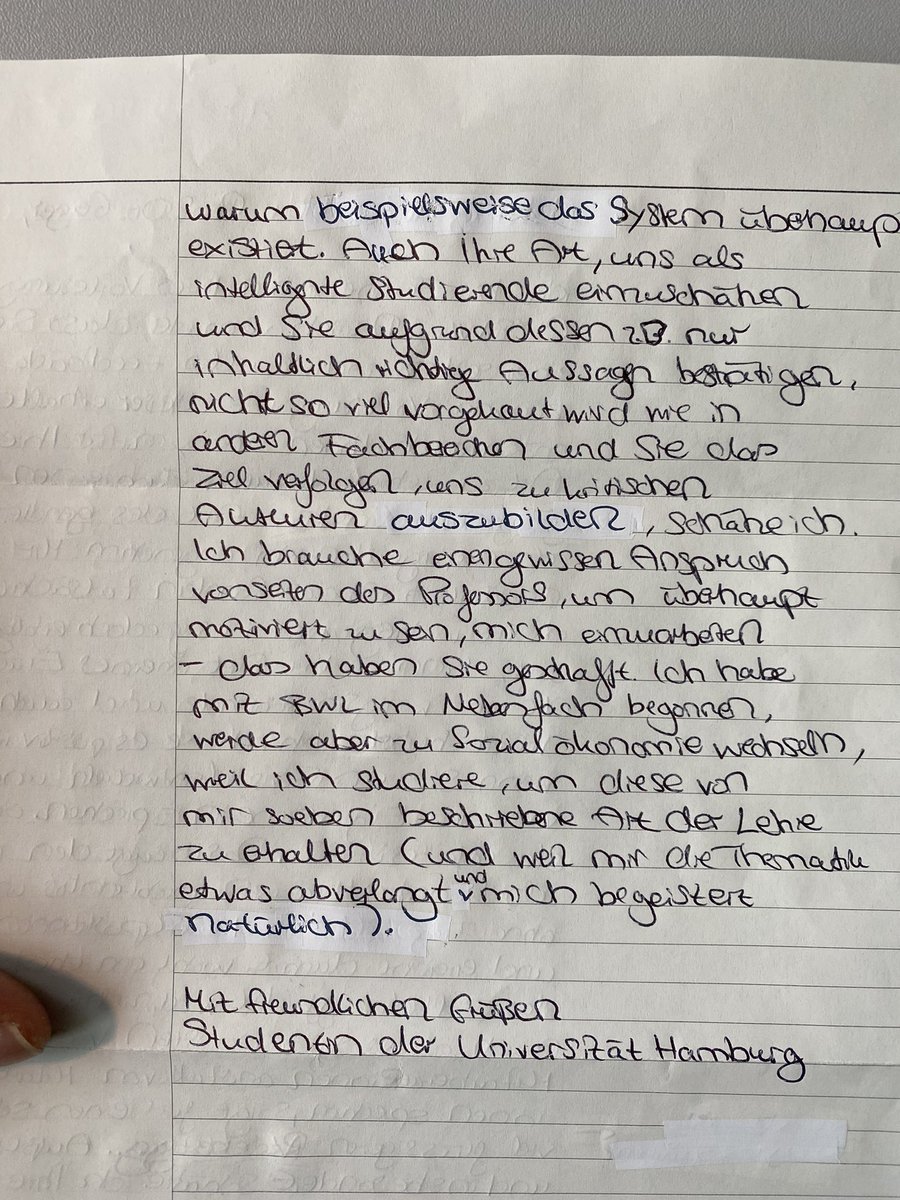 warum beispielsweise das System überhaup
existiert. Auch Ihre Art, uns als
intelligente Studierende einzuschätzen
und Sie aufgrund dessen z.B. nur
inhaltlich richtige Aussagen bestätigen,
nicht so viel vorgekaut wird wie in
anderen Fachbereichen und Sie das
Ziel verfolgen, uns zu kritischen
auszubilden, schätze ich.
Ich brauche einen gewissen Anspruch
vonseiten des Professors, um überhaupt
motiviert zu sein, mich einzuarbeiten
- das haben Sie geschafft. Ich habe
mit BWL im Nebenfach begonnen,
werde aber zu Sozialökonomie wechseln,
weil ich studiere, um diese von
mir soeben beschriebene Art der Lehre
zu erhalten (und weil mir die Thematik
etwas abverlangt und mich begeistert
natürlich).
Mit freundlichen Grüßen
Studentin der Universität Hamburg